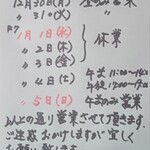 12月30日(月) 昼のみ営業
〃 31日(火) 〃
R7 1月1日(水)
〃 2日(木) 休業
〃 3日(金)
〃 4日(土) 午前11:00〜
午後17:00〜
〃 5日(日) 午前のみ営業
以上の通り営業させて頂きます。
ご迷惑おかけしますが宜しく
お願い致します